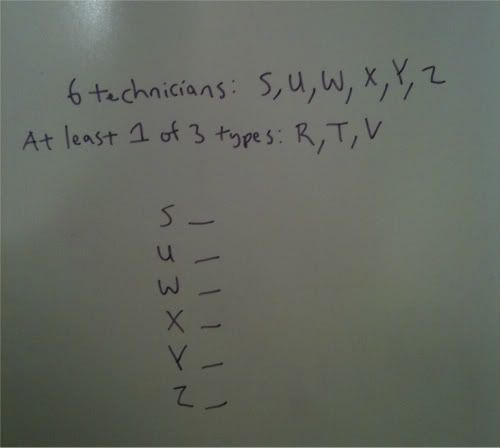 6 technicians: S, U, W, X, Y, Z
At least 1 of 3 types: R, T, V
S _
U _
W _
X _
Y _
Z _